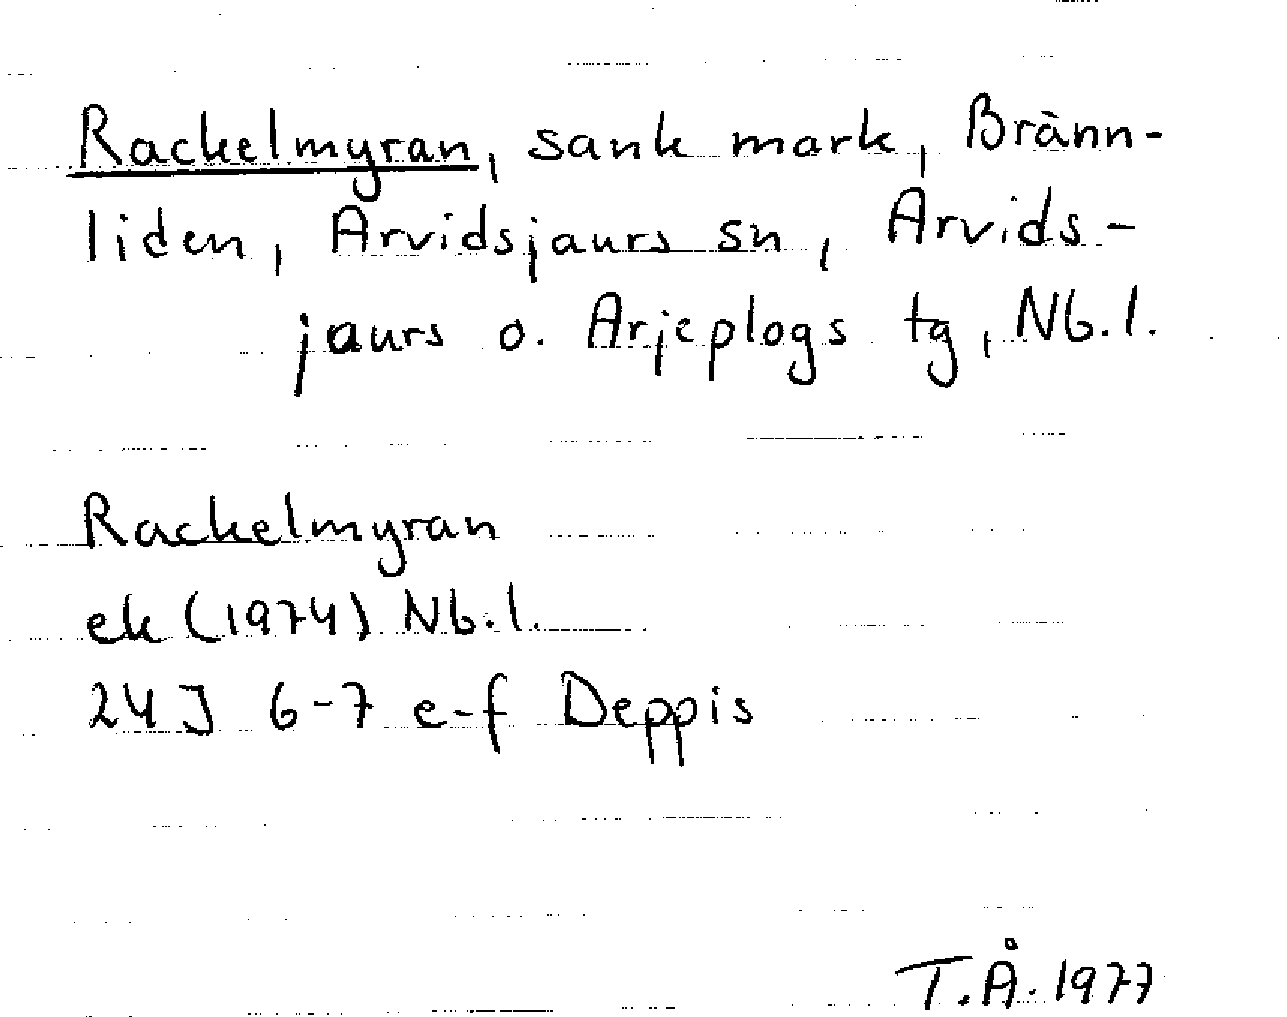 Rackelmyran, sank mark, Bränn-
liden, Arvidsjaurs sn, Arvids-
jaurs o. Arjeplogs tg, Nb.l.
Rackelmyran
ek (1974) Nb.l.
24J 6-7 e-f Deppis
T.Å. 1977